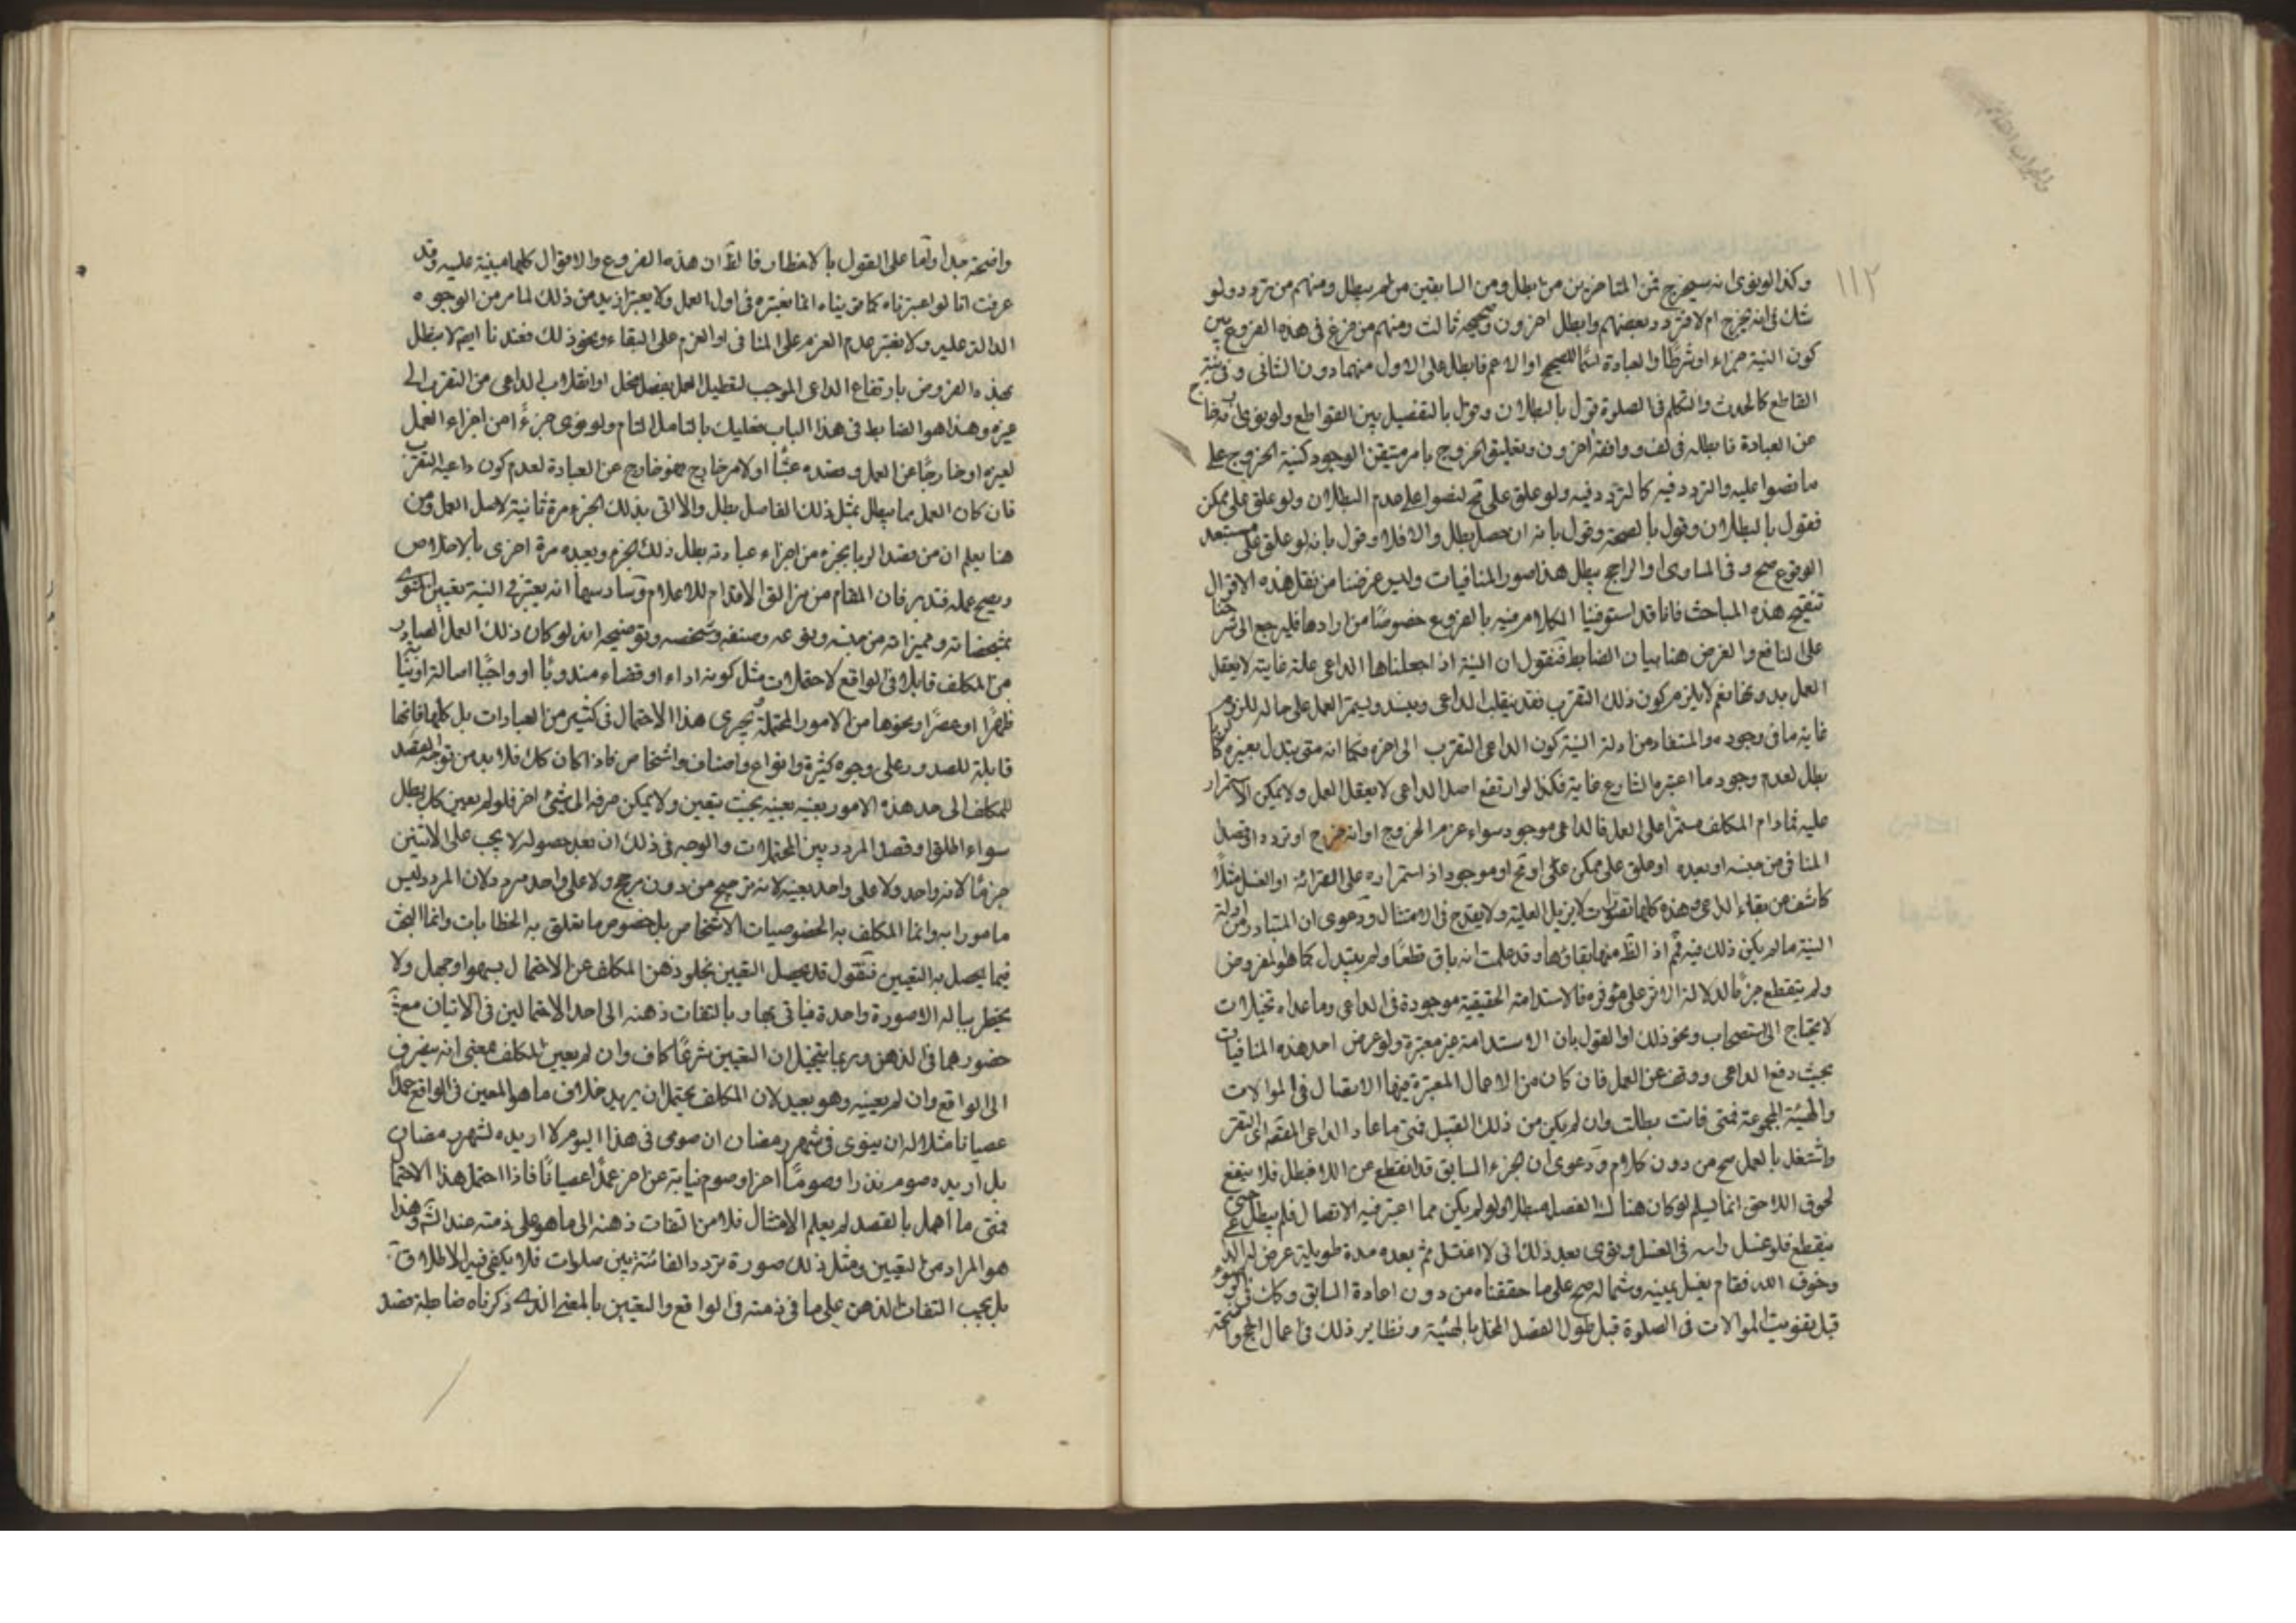 ١١٢
وكذا لو نوى انه سيخرج فمن المتاخرين من ابطل ومن السابقين من لم يبطل ومنهم من تردد ولو
شك في انه يخرج ام لا فتردد بعضهم وابطل اخرون وصححه ثالث ومنهم من فرع في هذه الفروع بين
كون النية جزاء او شرطا والعبادة اسما للصحيح او الاعم فابطل على الاول منهما دون الثاني وفي نية
القاطع كالحدث والتكلم في الصلوة قول بالبطلان وقول بالتفصيل بين القواطع ولو نوى انه خارج
عن العبادة فابطله في لف ووافقه اخرون وتعليق الخروج بامر متيقن الوجود كنية الخروج على
ما نصوا عليه والتردد فيه كالتردد فيه ولو علق على مح لنصوا على عدم البطلان ولو علق على ممكن
فقول بالبطلان وقول بالصحة وقول بانه ان حصل بطل والا فلا وقول بانه لو علق على مستبعد
الوقوع صح وفي المساوى او الراجح يبطل هذا صور المنافيات وليس غرضنا من نقل هذه الاقوال
تنقيح هذه المباحث فانا قد استوفينا الكلام فيه بالفروع خصوصا من ارادها فليرجع الى شرحنا
على النافع والغرض هنا بيان الضابط فنقول ان النية اذا جعلناها الداعى علة غاية لا يعقل
العمل بدونها نعم لا يلزم كون ذلك التقرب فقد ينقلب الداعى ويفسد ويستمر العمل على حاله للزوم
غاية ما في وجوده والمستفاد من ادلة النية كون الداعى التقرب الى اخره فكما انه متى يتدل بغيره
بطل لعدم وجود ما اعتبره الشارع غاية فكذا لو ارتفع اصل الداعى لا يعقل العمل ولا يمكن الاستمرار
عليه فما دام المكلف مستمرا على العمل فالداعى موجود سواء عزم الخروج او انه خرج او تردد او قصد
المنافى من جنسه او بعيده او علق على ممكن او مح او موجود اذ استمراره على القرائة او الغسل مثلا
كاشف عن بقاء الداعى وهذه كلها تصورات لا يزيل العلية ولا يقدح في الامتثال ودعوى ان المتبادر من ادلة
النية ما لم يكن ذلك فيه مم اذ الظ منها بقائها وقد علمت انه باق قطعا ولم يتبدل كما هو المفروض
ولم ينقطع جزما لدلالة الاثر على مؤثره فالاستدامة الحقيقية موجودة في الداعى وما عداه تخيلات
لا يحتاج الى استصحاب ونحو ذلك او القول بان الاستدامة غير معتبرة ولو عرض احد هذه المنافيات
بحيث دفع الداعى ووقف عن العمل فان كان من الاعمال المعتبرة فيها الاتصال في الموالات
والهيئة المجموعة فمتى فاتت بطلت وان لم يكن من ذلك القبيل فمتى ما عاد الداعى المقتضى التقرب
واشتغل بالعمل صح من دون كلام ودعوى ان الجزء السابق قد انقطع عن اللاحق فبطل فلا ينفع
لحوق اللاحق انما يسلم لو كان هناك الفصل مبطلا ولو لم يكن مما اعتبر فيه الاتصال فلم يبطل حتى
ينقطع فلو غسل راسه في الغسل ونوى بعد ذلك انى لا اغتسل ثم بعده مدة طويلة عرض له
وخوف الله فقام يغسل يمينه وشماله صح على ما حققناه من دون اعادة السابق وكك في الوضوء
قبل تفويت الموالات في الصلوة قبل طول الفصل المخل بالهيئة ونظاير ذلك في اعمال الحج
واضحة
واضحة جدا واما على القول بالاخطار فالظ ان هذه الفروع والاقوال كلها مبنية عليه وقد
عرفت انا لو اعتبرناه كما قويناه انما نعتبره في اول العمل ولا يعتبر ازيد من ذلك لما مر من الوجوه
الدالة عليه ولا نعتبر عدم العزم على المنافى او العزم على البقاء ونحو ذلك فعندنا ايضا لا يبطل
بهذه الفروض بارتفاع الداعى الموجب لتعطيل العمل بفصل مخل او انقلاب الداعى من التقرب الى
غيره وهذا هو الضابط في هذا الباب فعليك بالتامل التام ولو نوى جزءا من اجزاء العمل
لغيره او خارجا عن العمل وقصده عبثا او لامر خارج فهو خارج عن العبادة لعدم كون داعيه التقرب
فان كان العمل مما يبطل بمثل ذلك الفاصل بطل والا اتى بذلك الجزء مرة ثانية لاصل العمل ومن
هنا يعلم ان من قصد الريا بجزء من اجزاء عبادته بطل ذلك الجزء ويعيده مرة اخرى بالاخلاص
ويصح عمله فتدبر فان المقام من مزالق الاقدام للاعلام وسادسها انه يعتبر في النية تعيين المنوى
بمشخصاته ومميزاته من جنسه ونوعه وصنفه وشخصه وتوضيحه انه لو كان ذلك العمل الصادر
من المكلف قابلا في الواقع لاحتمالات مثل كونه اداء او قضاء مندوبا او واجبا اصالة او نيابة
ظهرا او عصرا ونحوها من الامور المحتملة ويجرى هذا الاحتمال في كثير من العبادات بل كلها فانها
قابلة للصدور على وجوه كثيرة وانواع واصناف واشخاص فاذا كان كك فلا بد من توجه القصد
للمكلف الى احد هذه الامور بعينه بعينه بحيث يتعين ولا يمكن صرفه الى شئ اخر فلو لم يعين كك بطل
سواء اطلق او قصد المردد بين المحتملات والوجه في ذلك ان بعد حصوله لا يجب على الاثنين
جزما لانه واحد ولا على واحد بعينه لانه ترجيح من دون مرجح ولا على واحد مردد لان المردد ليس
مامورا به وانما المكلف به الخصوصيات الاشخاص بل خصوص ما تعلق به الخطابات وانما البحث
فيما يحصل به التعيين فنقول قد يحصل التعيين بخلو ذهن المكلف عن الاحتمال بسهو او جهل ولا
يخطر بباله الا صورة واحدة فياتى بها وبالتفات ذهنه الى احد الاحتمالين في الاتيان مع
حضورهما في الذهن وربما يتخيل ان التعيين شرعا كاف وان لم يعين المكلف بمعنى انه ينصرف
الى الواقع وان لم يعينه وهو بعيد لان المكلف يحتمل ان يريد خلاف ما هو المعين في الواقع عمدا
عصيانا مثلا له ان ينوى في شهر رمضان ان صومى في هذا اليوم لا اريده لشهر رمضان
بل اريده صوم نذر او صوما اخر او صوم نيابة عن اخر عمدا عصيانا فاذا احتمل هذا الاحتمال
فمتى ما اهمل بالقصد لم يعلم الامتثال فلا من التفات ذهنه الى ما هو على ذمته عند الش وهذا
هو المراد من التعيين ومثل ذلك صورة تردد الفائتة بين صلوات فلا يكفى فيه الاطلاق
بل يجب التفات الذهن على ما في ذمته في الواقع والتعيين بالمعنى الذى ذكرناه ضابطة قصد